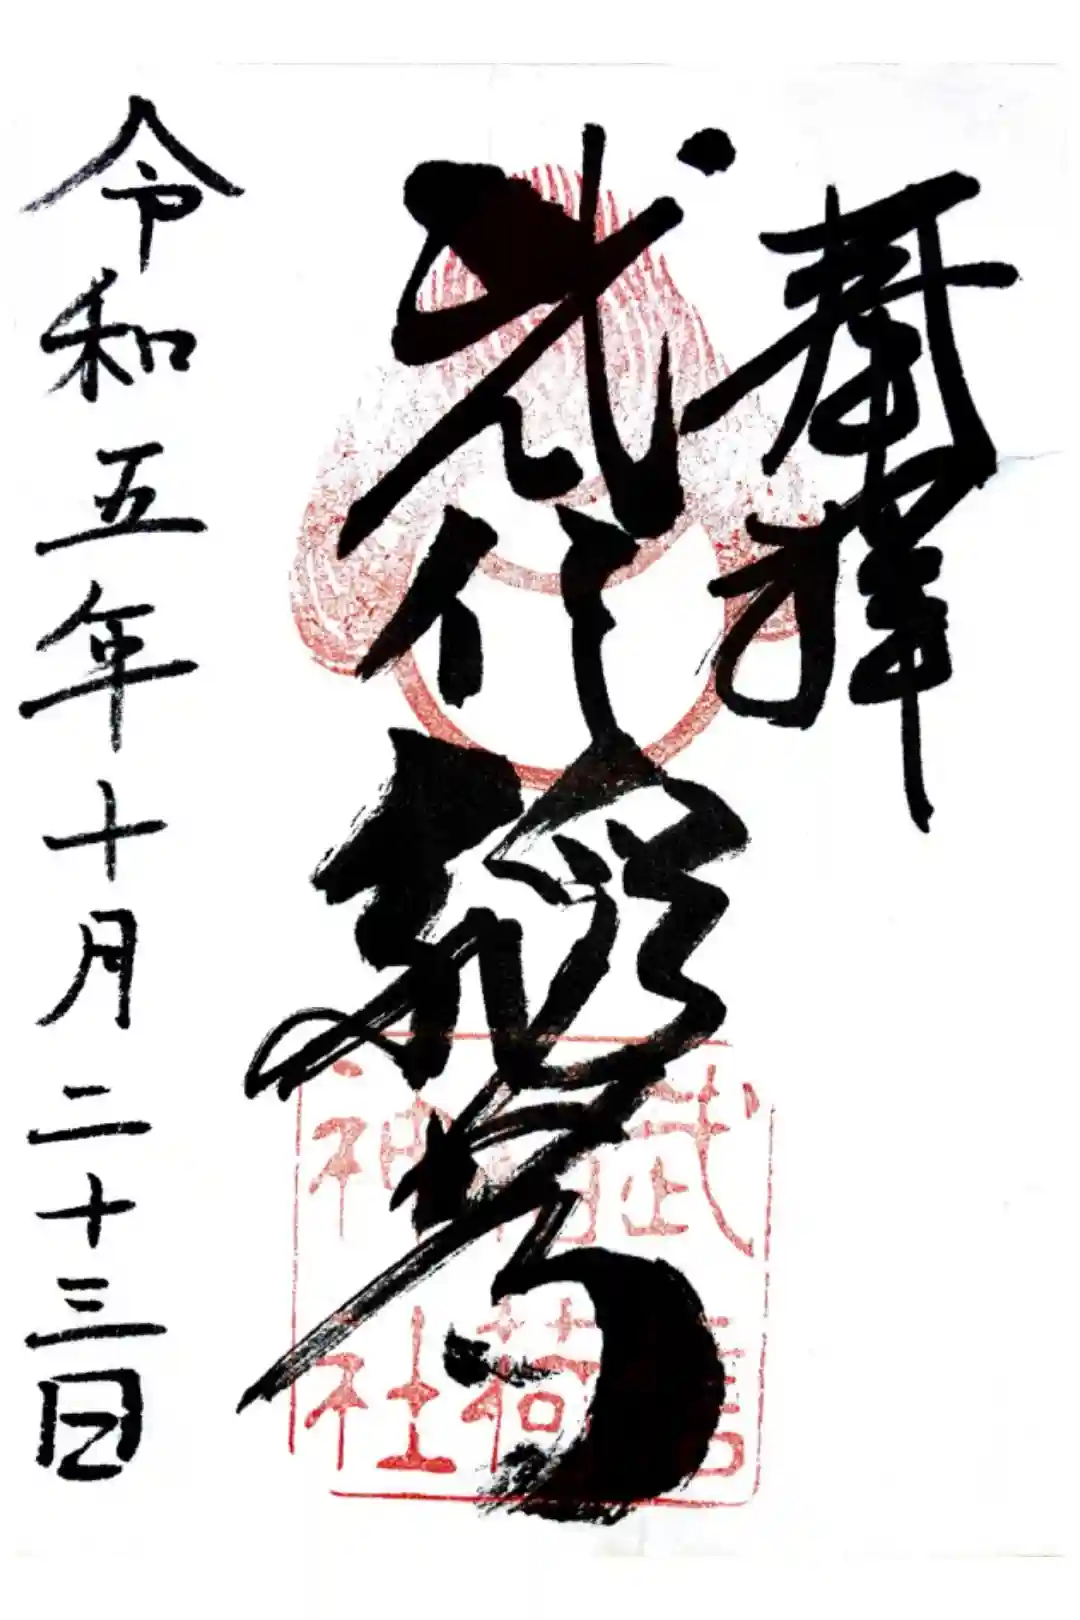 奉拝
武信稲荷
武信稲荷神社
令和五年十月二十三日